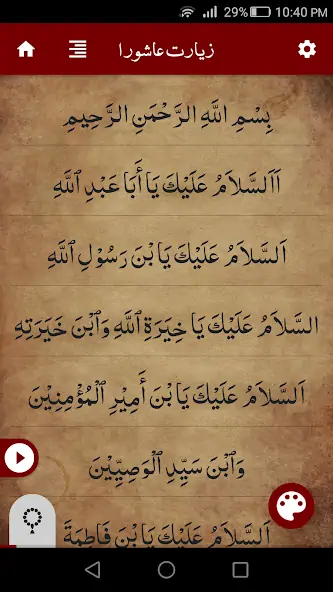 29% 10:40 PM
زیارت عاشورا
بِسْمِ اللَّهِ الرَّحْمَنِ الرَّحِيمِ
اَلسَّلاَمُ عَلَيْكَ يَا أَبَا عَبْدِ ٱللَّهِ
اَلسَّلاَمُ عَلَيْكَ يَا بْنَ رَسُوْلِ ٱللَّهِ
السَّلاَمُ عَلَيْكَ يَا خِيَرَةِ ٱللَّهِ وَٱبْنَ خَيَرَتِهِ
اَلسَّلاَمُ عَلَيْكَ يَا بْنَ أَمِيْرِ ٱلْمُؤْمِنِيْنَ
وَٱبْنَ سَيِّدِ ٱلْوَصِيِّيْنَ
اَلسَّلاَمُ عَلَيْكَ يَا بْنَ فَاطِمَةَ